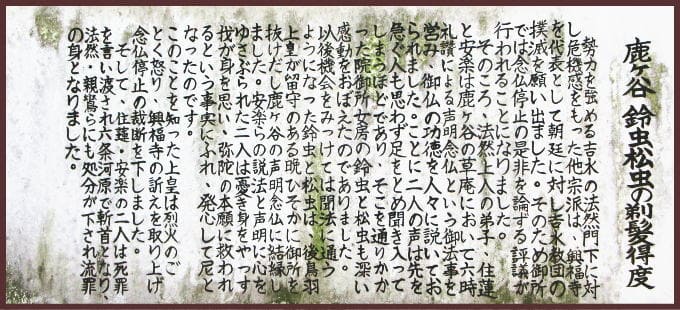 鹿ヶ谷 鈴虫松虫の剃髪得度
勢力を強める吉水の法然門下に対
し危機感をもった他宗派は、興福寺
を代表として朝廷に対し吉水教団の
撲滅を願い出ました。そのため御所
では念仏停止の是非を論ずる評議が
行われることになりました。
そのころ、法然上人の弟子、住蓮
と安楽は鹿ヶ谷の草庵において六時
礼讃による声明念仏という御法事を
営み、御仏の功徳を人々に説いてお
られました。ことに二人の声は先を
急ぐ人も思わず足をとめ聞き入って
しまうほどであり、そこを通りかか
った院御所女房の鈴虫と松虫も深い
感動をおぼえたのでありました。
以後機会をみつけては聞法に通う
ようになった鈴虫と松虫は、後鳥羽
上皇が留守のある晩ひそかに御所を
抜けだし鹿ヶ谷の声明念仏に結縁し
ました。安楽らの説法と声明に心を
ゆさぶられた二人は憂き身をやつす
我が身を思い、弥陀の本願に救われ
るという事実にふれ、発心して尼と
なったのです。
このことを知った上皇は烈火のご
とく怒り、興福寺の訴えを取り上げ
念仏停止の裁断を下しました。
そして、住蓮・安楽の二人は死罪
を言い渡され六条河原で斬首となり、
法然・親鸞らにも処分が下され流罪
の身となりました。